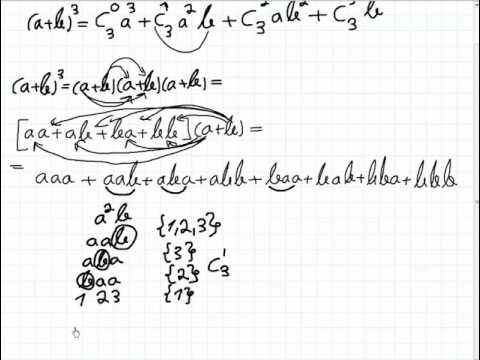 (a+b)³ = C₃⁰a³ + C₃¹a²b + C₃²ab² + C₃³b
(a+b)³ = (a+b)(a+b)(a+b) =
[aa+ab+ba+bb](a+b) =
= aaa + aab + aba + abb + baa + bab + bba + bbb
a²b
aab {1,2,3}
aba {3}
baa {2} C₃¹
1 2 3 {1}